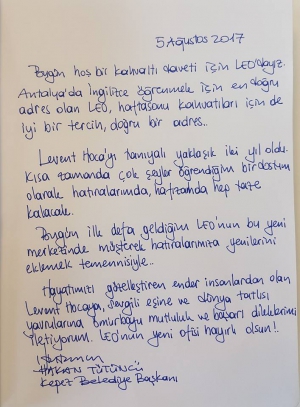 5 Ağustos 2017
Bugün hoş bir kahvaltı daveti için LEO'dayız.
Antalya'da İngilizce öğrenmek için en doğru
adres olan LEO, haftasonu kahvaltıları için de
iyi bir tercih, doğru bir adres..
Levent Hoca'yı tanıyalı yaklaşık iki yıl oldu.
Kısa zamanda çok şeyler öğrendiğim bir dostum
olarak hatıralarımda, hafızamda hep taze
kalacak.
Bugün ilk defa geldiğim LEO'nun bu yeni
merkezinde müşterek hatıralarımıza yenilerini
eklemek temennisiyle..
Hayatımızı güzelleştiren ender insanlardan olan
Levent Hocaya, sevgili eşine ve dünya tatlısı
yavrularına ömürboyu mutluluk ve başarı dileklerimi
iletiyorum. LEO'nun yeni ofisi hayırlı olsun!.
HAKAN TÜTÜNCÜ
Kepez Belediye Başkanı